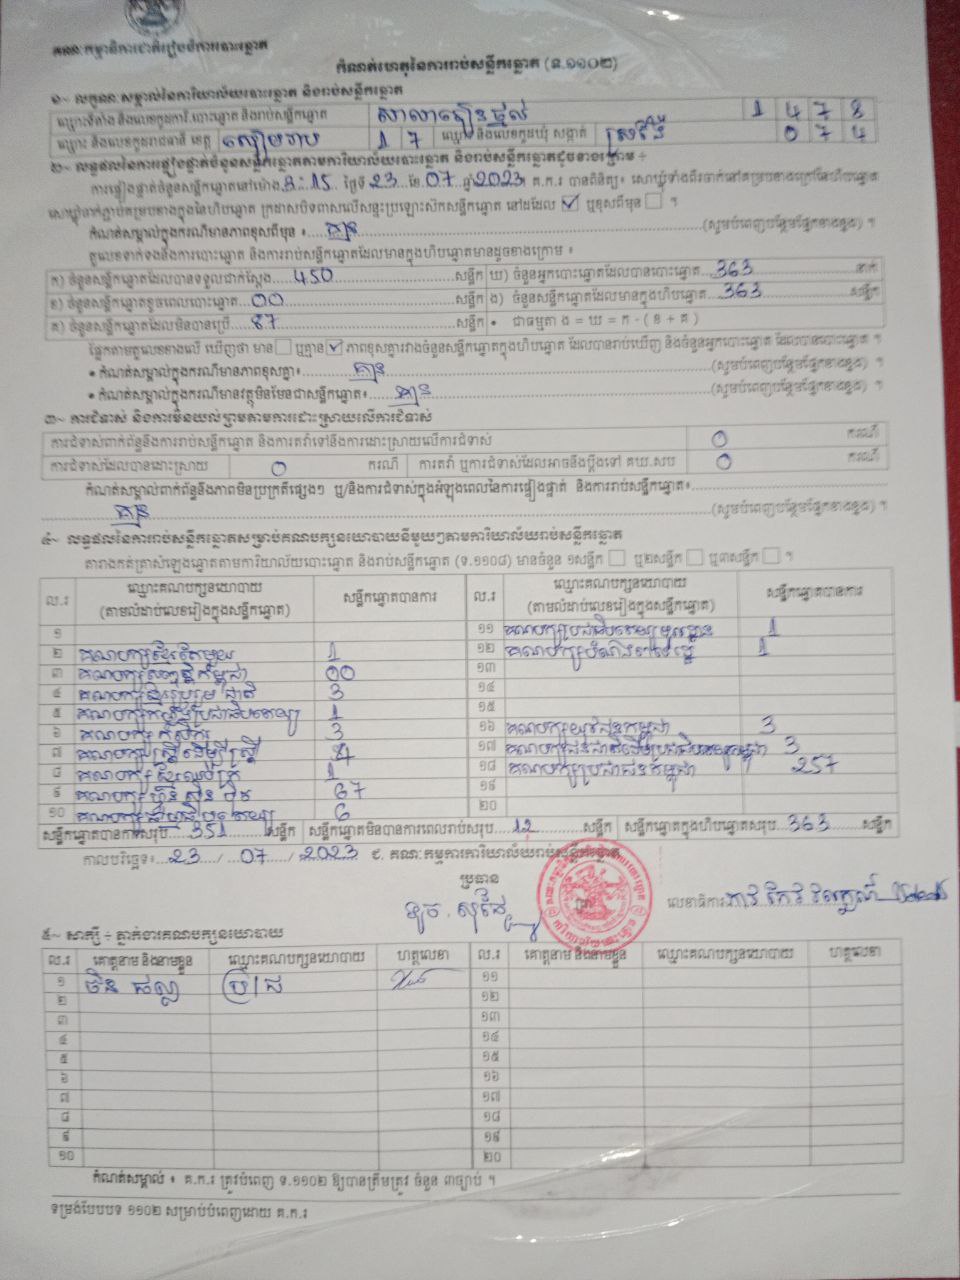 គណៈកម្មាធិការជាតិរៀបចំការបោះឆ្នោត
កំណត់ហេតុនៃការរាប់សន្លឹកឆ្នោត (ទ.១១០២)
១~ លក្ខណៈសម្គាល់នៃការិយាល័យបោះឆ្នោត និងរាប់សន្លឹកឆ្នោត
ឈ្មោះទីតាំង និងលេខកូដការិ.បោះឆ្នោត និងរាប់សន្លឹកឆ្នោត 1 4 7 8
ឈ្មោះ និងលេខកូដរាជធានី ខេត្ត សៀមរាប 1 7 ឈ្មោះ និងលេខកូដឃុំ សង្កាត់ 0 7 4
២~ លទ្ធផលនៃការផ្ទៀងផ្ទាត់ចំនួនសន្លឹកឆ្នោតតាមការិយាល័យបោះឆ្នោត និងរាប់សន្លឹកឆ្នោតដូចខាងក្រោម ÷
ការផ្ទៀងផ្ទាត់ចំនួនសន្លឹកឆ្នោតនៅម៉ោង 3:15 ថ្ងៃទី 23 ខែ 07 ឆ្នាំ 2023។ គ.ក.រ បានពិនិត្យ៖ សោឃ្លុំទាំងពីរចាក់នៅគម្របខាងក្រៅនៃហិបឆ្នោត
សោឃ្លុំចាក់ភ្ជាប់គម្របខាងក្នុងនៃហិបឆ្នោត ក្រដាសបិទពាសលើសន្ទះប្រឡោះស៊កសន្លឹកឆ្នោត នៅដដែល ☑ ឬខុសពីមុន ☐ ។
កំណត់សម្គាល់ក្នុងករណីមានភាពខុសពីមុន ៖ គ្មាន (សូមបំពេញបន្ថែមផ្នែកខាងខ្នង) ។
តួលេខទាក់ទងនឹងការបោះឆ្នោត និងការរាប់សន្លឹកឆ្នោតដែលមានក្នុងហិបឆ្នោតមានដូចខាងក្រោម ៖
ក) ចំនួនសន្លឹកឆ្នោតដែលបានទទួលជាក់ស្តែង 450 សន្លឹក ឃ) ចំនួនអ្នកបោះឆ្នោតដែលបានបោះឆ្នោត 363 នាក់
ខ) ចំនួនសន្លឹកឆ្នោតខូចពេលបោះឆ្នោត 00 សន្លឹក ង) ចំនួនសន្លឹកឆ្នោតដែលមានក្នុងហិបឆ្នោត 363 សន្លឹក
គ) ចំនួនសន្លឹកឆ្នោតដែលមិនបានប្រើ 87 សន្លឹក • ជាធម្មតា ង = ឃ = ក - ( ខ + គ )
ផ្អែកតាមតួលេខខាងលើ ឃើញថា មាន ☐ ឬគ្មាន ☑ ភាពខុសគ្នារវាងចំនួនសន្លឹកឆ្នោតក្នុងហិបឆ្នោត ដែលបានរាប់ឃើញ និងចំនួនអ្នកបោះឆ្នោត ដែលបានបោះឆ្នោត ។
• កំណត់សម្គាល់ក្នុងករណីមានភាពខុសគ្នា៖ គ្មាន (សូមបំពេញបន្ថែមផ្នែកខាងខ្នង) ។
• កំណត់សម្គាល់ក្នុងករណីមានវត្ថុមិនមែនជាសន្លឹកឆ្នោត៖ គ្មាន (សូមបំពេញបន្ថែមផ្នែកខាងខ្នង) ។
៣~ ការជំទាស់ និងការមិនយល់ព្រមតាមការដោះស្រាយលើការជំទាស់
ការជំទាស់ពាក់ព័ន្ធនឹងការរាប់សន្លឹកឆ្នោត និងការតវ៉ាទៅនឹងការដោះស្រាយលើការជំទាស់ 0 ករណី
ការជំទាស់ដែលបានដោះស្រាយ 0 ករណី ការតវ៉ា ឬការជំទាស់ដែលអាចនឹងប្តឹងទៅ គឃ.សប 0 ករណី
កំណត់សម្គាល់ពាក់ព័ន្ធនឹងភាពមិនប្រក្រតីផ្សេងៗ ឬ/និងការជំទាស់ក្នុងអំឡុងពេលនៃការផ្ទៀងផ្ទាត់ និងការរាប់សន្លឹកឆ្នោត៖
គ្មាន (សូមបំពេញបន្ថែមផ្នែកខាងខ្នង) ។
៤~ លទ្ធផលនៃការរាប់សន្លឹកឆ្នោតសម្រាប់គណបក្សនយោបាយនីមួយៗតាមការិយាល័យរាប់សន្លឹកឆ្នោត
តារាងកត់ត្រាសំឡេងឆ្នោតតាមការិយាល័យបោះឆ្នោត និងរាប់សន្លឹកឆ្នោត (ទ.១១០៨) មានចំនួន ១សន្លឹក ☐ ឬ២សន្លឹក ☐ ឬ៣សន្លឹក ☐ ។
ល.រ ឈ្មោះគណបក្សនយោបាយ (តាមលំដាប់លេខរៀងក្នុងសន្លឹកឆ្នោត) សន្លឹកឆ្នោតបានការ ល.រ ឈ្មោះគណបក្សនយោបាយ (តាមលំដាប់លេខរៀងក្នុងសន្លឹកឆ្នោត) សន្លឹកឆ្នោតបានការ
១ ១១ គណបក្សប្រជាធិបតេយ្យមូលដ្ឋាន 1
២ គណបក្សខ្មែរតែមួយ 1 ១២ 1
៣ គណបក្ស កម្ពុជា 00 ១៣
៤ គណបក្សខ្មែររួបរួមជាតិ 3 ១៤
៥ គណបក្សកម្លាំងប្រជាធិបតេយ្យ 1 ១៥
៦ គណបក្ស កសិករ 3 ១៦ គណបក្សយុវជនកម្ពុជា 3
៧ គណបក្ស ស្ត្រីដើម្បីស្ត្រី 4 ១៧ គណបក្សជនជាតិដើមប្រជាធិបតេយ្យកម្ពុជា 3
៨ គណបក្ស 1 ១៨ គណបក្សប្រជាជនកម្ពុជា 257
៩ គណបក្ស ហ៊្វុនស៊ិនប៉ិច 67 ១៩
១០ គណបក្សធម្មាធិបតេយ្យ 6 ២០
សន្លឹកឆ្នោតបានការសរុប 351 សន្លឹក សន្លឹកឆ្នោតមិនបានការពេលរាប់សរុប 12 សន្លឹក សន្លឹកឆ្នោតក្នុងហិបឆ្នោតសរុប 363 សន្លឹក
កាលបរិច្ឆេទ៖ 23 / 07 / 2023 ជ. គណៈកម្មការការិយាល័យរាប់សន្លឹកឆ្នោត
ប្រធាន
លេខាធិការ
៥~ សាក្សី ÷ ភ្នាក់ងារគណបក្សនយោបាយ
ល.រ គោត្តនាម និងនាមខ្លួន ឈ្មោះគណបក្សនយោបាយ ហត្ថលេខា ល.រ គោត្តនាម និងនាមខ្លួន ឈ្មោះគណបក្សនយោបាយ ហត្ថលេខា
១ ប្រ/ជ ១១
២ ១២
៣ ១៣
៤ ១៤
៥ ១៥
៦ ១៦
៧ ១៧
៨ ១៨
៩ ១៩
១០ ២០
កំណត់សម្គាល់ ៖ គ.ក.រ ត្រូវបំពេញ ទ.១១០២ ឱ្យបានត្រឹមត្រូវ ចំនួន ៣ច្បាប់ ។
ទម្រង់បែបបទ ១១០២ សម្រាប់បំពេញដោយ គ.ក.រ